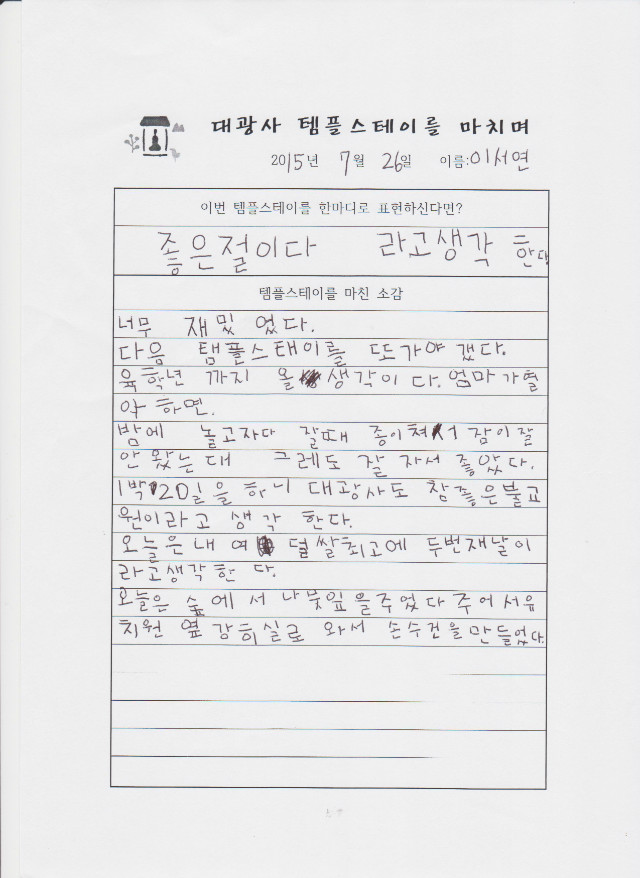 대광사 템플스테이를 마치며
2015년 7월 26일 이름:이서연
이번 템플스테이를 한마디로 표현하신다면?
좋은절이다 라고생각 한다
템플스테이를 마친 소감
너무 재밌 었다.
다음 탬플스태이를 또가야 겠다.
육학년 까지 올 생각이다. 엄마가혈
악 하면.
밤에 놀고자다 잘때 종이쳐서 잠이잘
안 왔는대 그레도 잘 자서 좋았다.
1박20일을 하니 대광사도 참좋은불교
원이라고 생각 한다.
오늘은내 여 덜쌀최고에 두번재날이
라고생각한 다.
오늘은 숲에서 나뭇잎을주었다 주어서유
치원 옆 강희실로 와서 손수건을만들었다.